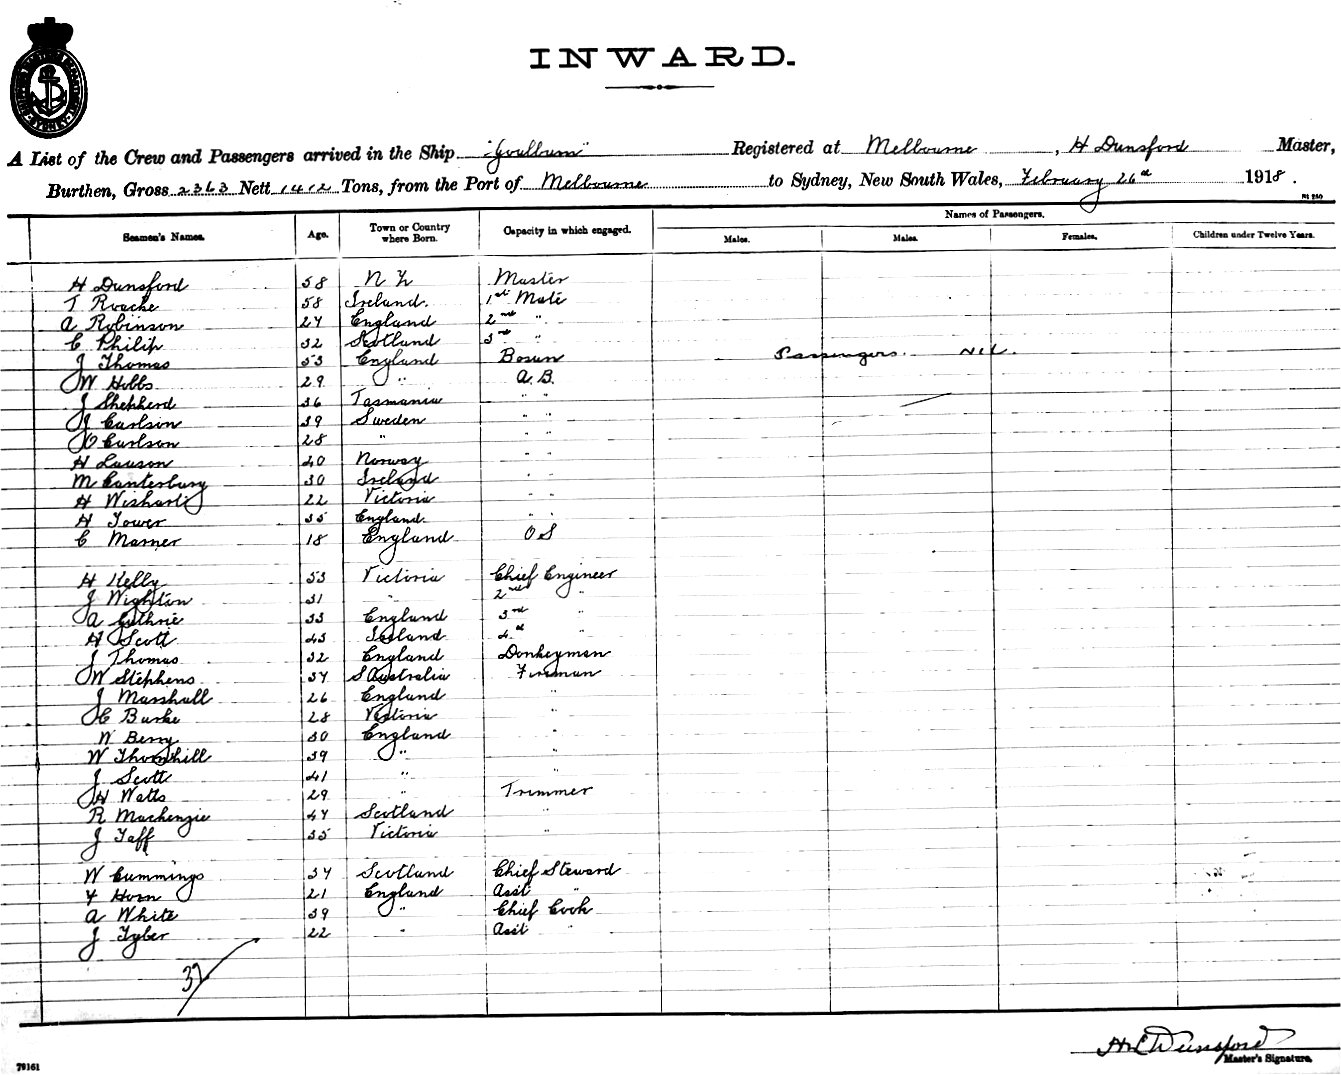 SHIPPING MASTERS DEPARTMENT SYDNEY
INWARD.
A List of the Crew and Passengers arrived in the Ship "Goulburn" Registered at Melbourne, H Dunsford Master,
Burthen, Gross 2363 Nett 1412 Tons, from the Port of Melbourne to Sydney, New South Wales, February 26th 1918.
Seamen's Names. Age. Town or Country where Born. Capacity in which engaged. Names of Passengers.
Males. Males. Females. Children under Twelve Years.
H Dunsford 58 N Z Master
T Roache 58 Ireland. 1st Mate
A Robinson 24 England 2nd "
C Philip 32 Scotland 3rd "
J Thomas 53 England Bosun Passengers. NIL.
W Hobbs 29 " A.B.
J Shepherd 36 Tasmania " "
J Carlson 39 Sweden " "
O Carlson 28 " " "
H Lawson 40 Norway " "
M Canterbury 30 Ireland " "
H Wishart 22 Victoria " "
H Tower 35 England. " "
C Marner 18 England O S
H Kelly 53 Victoria Chief Engineer
J Wighton 31 " 2nd "
A Guthrie 33 England 3rd
H Scott 43 Ireland 4th "
J Thomas 32 England Donkeyman
W Stephens 34 S Australia Fireman
J Marshall 26 England "
C Burke 28 Victoria "
W Berry 30 England "
W Thornhill 39 " "
J Scott 41 " "
H Watts 29 " Trimmer
R Mackenzie 44 Scotland "
J Taff 35 Victoria "
W Cummings 34 Scotland Chief Steward
F Horn 21 England Asst "
A White 39 " Chief Cook
J Tyber 22 " Asst "
32
H Dunsford
Master's Signature.
79161